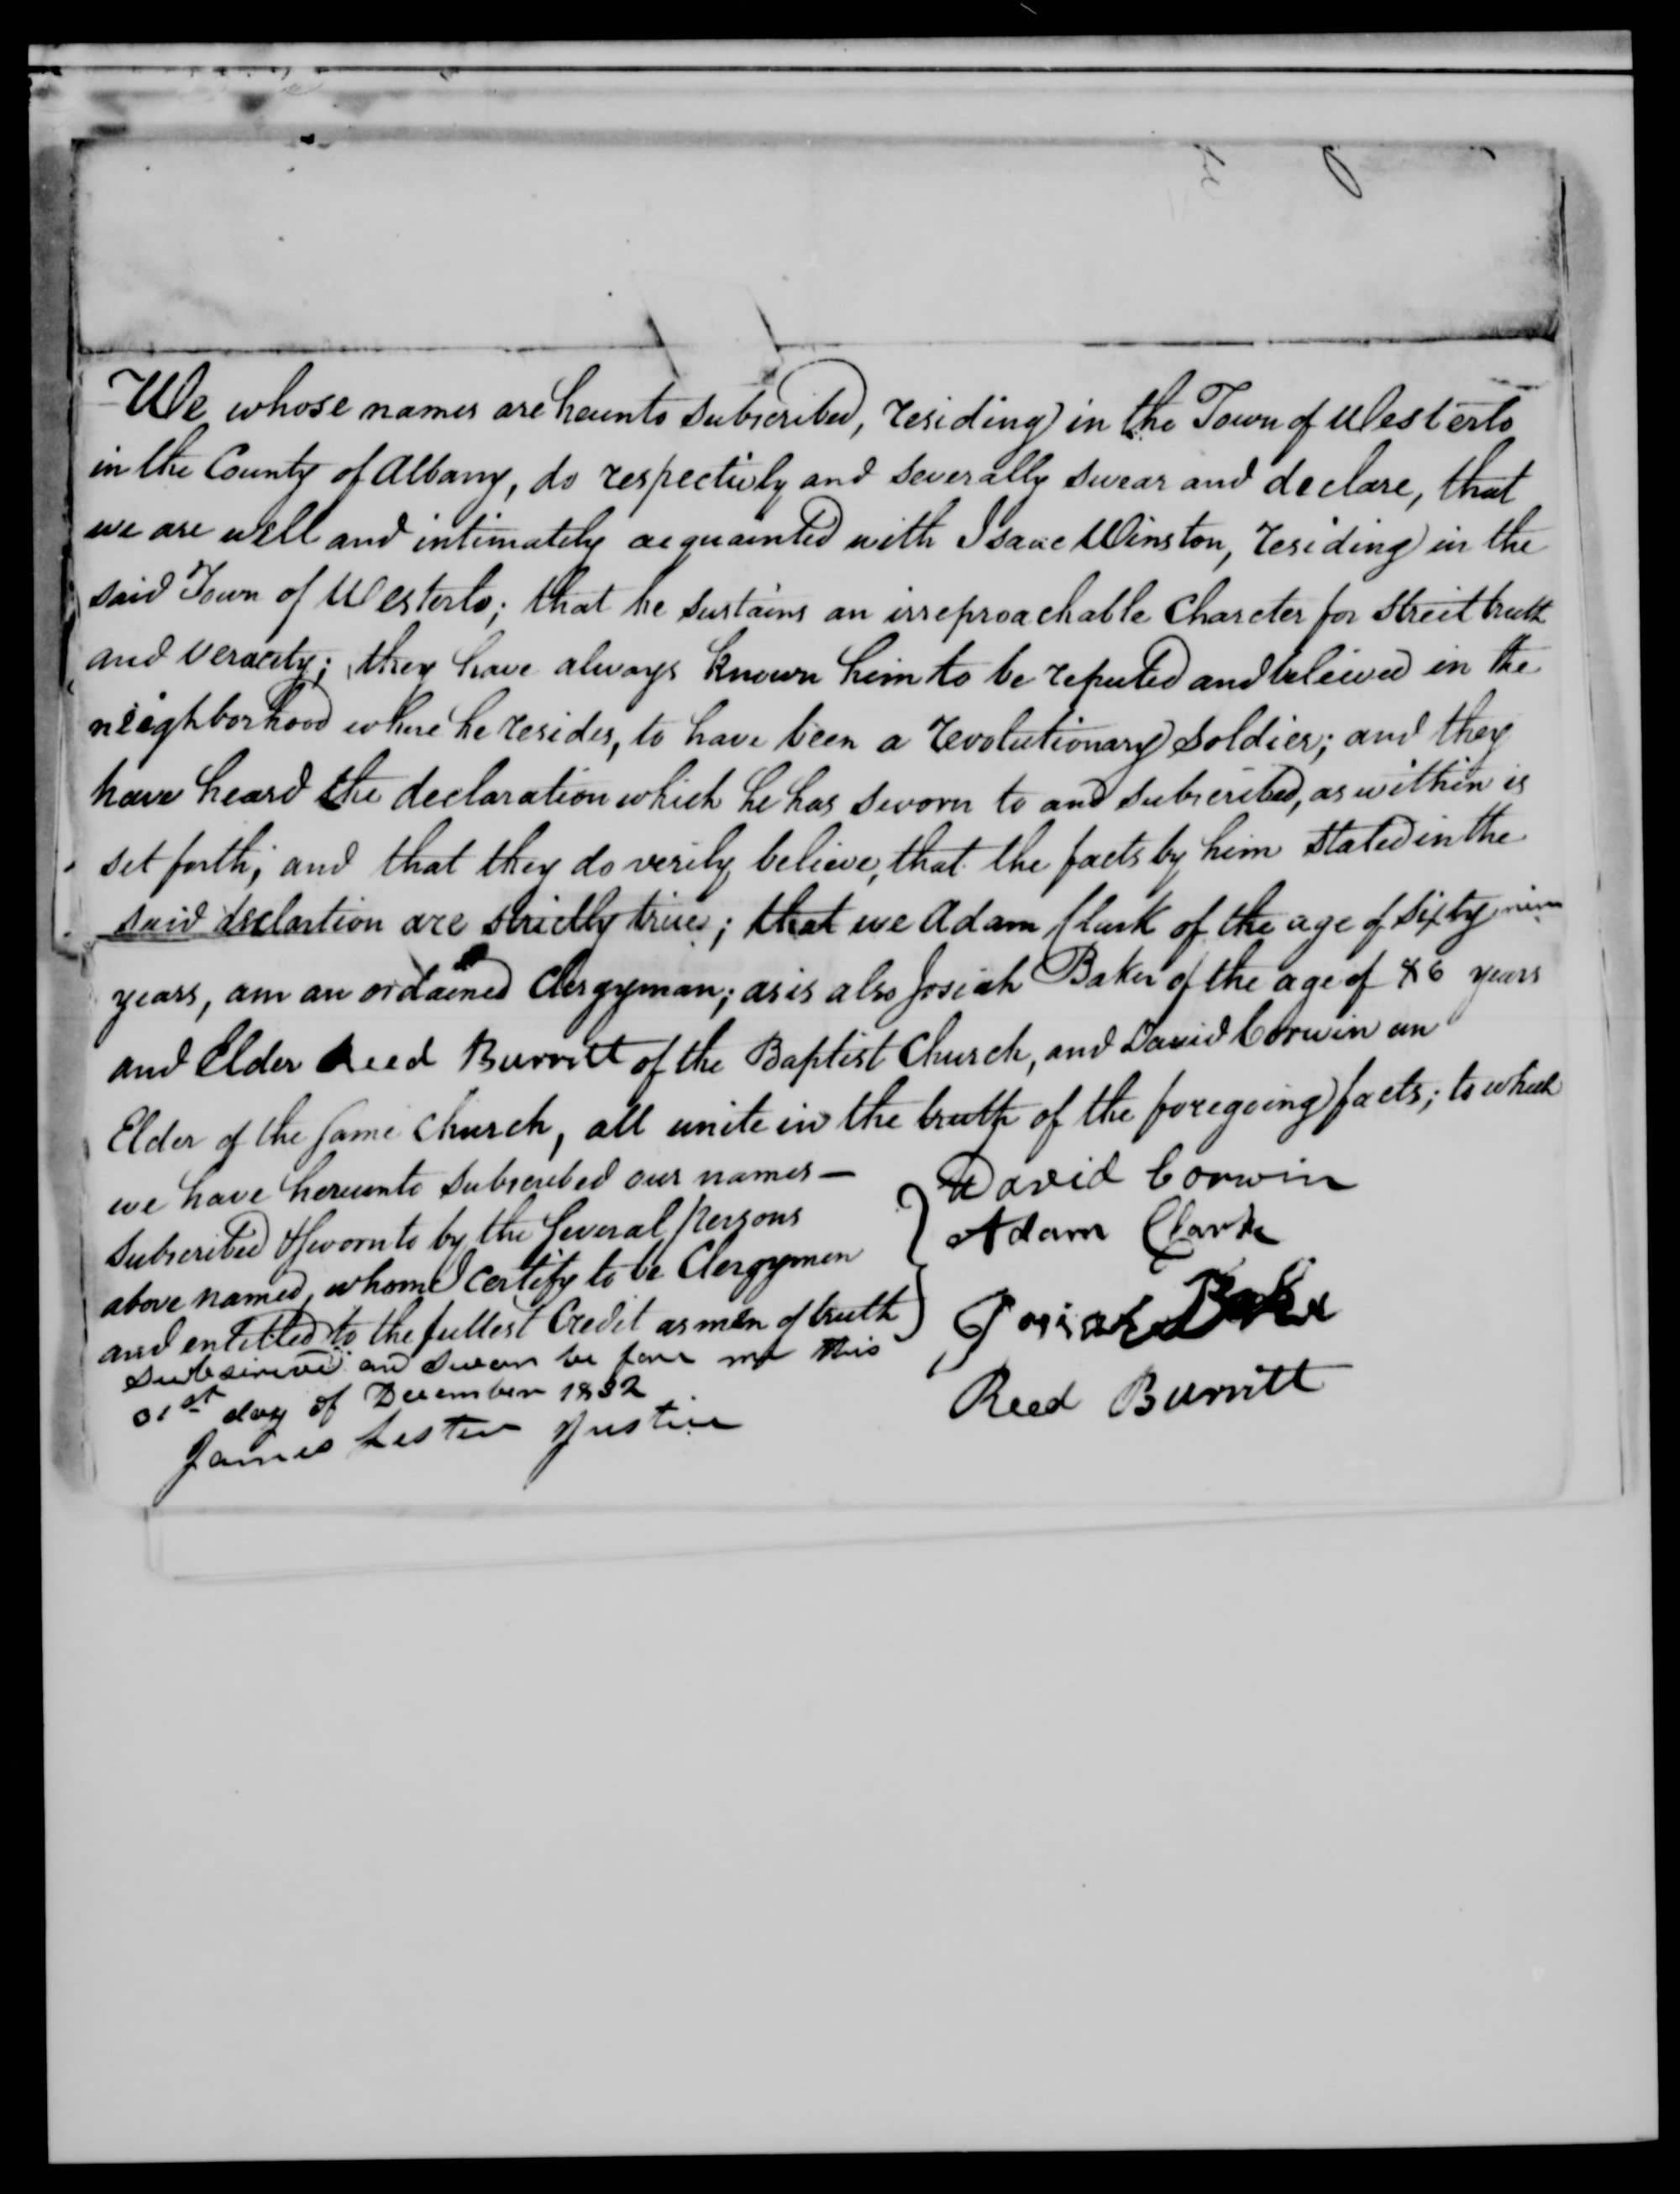 We whose names are heunto subscribed, residing in the Town of Westerlo
in the County of Albany, do respectivly and severally swear and declare, that
we are well and intimately acquainted with Isaac Winston, residing in the
said Town of Westerlo; that he sustains an irreproachable Charcter for Strict truth
and veracity; they have always known him to be reputed and beleived in the
neighborhood where he resides, to have been a revolutionary soldier; and they
have heard the declaration which he has sworn to and subscribed, as within is
set forth; and that they do verily believe, that the facts by him stated in the
said declartion are strictly true; that we Adam Clark of the age of sixty nine
years, am an ordained Clergyman; as is also Josiah Baker of the age of 46 years
and Elder Reed Burritt of the Baptist Church, and David Corwin an
Elder of the same church, all unite in the truth of the foregoing facts; to which
we have hereunto subscribed our names —
Subscribed & sworn to by the several persons
above named, whom I certify to be Clergymen
and entitled to the fullest Credit as men of truth
and sworn be fore me this
31st day of December 1832
James Lester Justice
David Corwin
Adam Clark
Josiah Baker
Reed Burritt